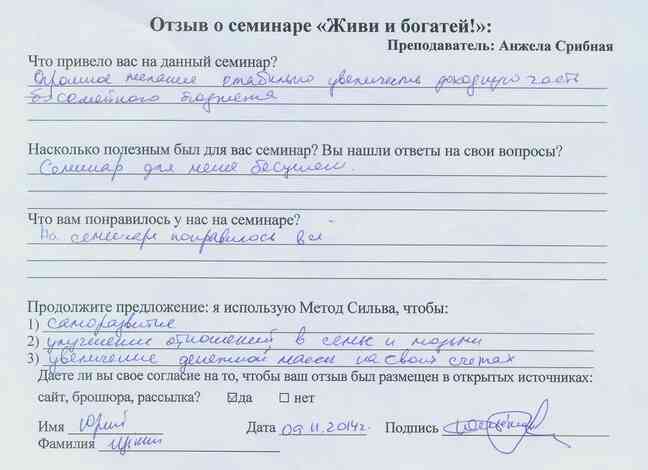 Отзыв о семинаре «Живи и богатей!»:
Преподаватель: Анжела Срибная
Что привело вас на данный семинар?
Огромное желание стабильно увеличить доходную часть
семейного бюджета
Насколько полезным был для вас семинар? Вы нашли ответы на свои вопросы?
Семинар для меня бесценен.
Что вам понравилось у нас на семинаре?
На семинаре понравилось все
Продолжите предложение: я использую Метод Сильва, чтобы:
1) саморазвитие
2) улучшение отношений в семье и людьми
3) увеличение денежной массы на своих счетах
Даете ли вы свое согласие на то, чтобы ваш отзыв был размещен в открытых источниках:
сайт, брошюра, рассылка? ☑да ☐ нет
Имя Юрий Дата 09.11.2014г. Подпись
Фамилия